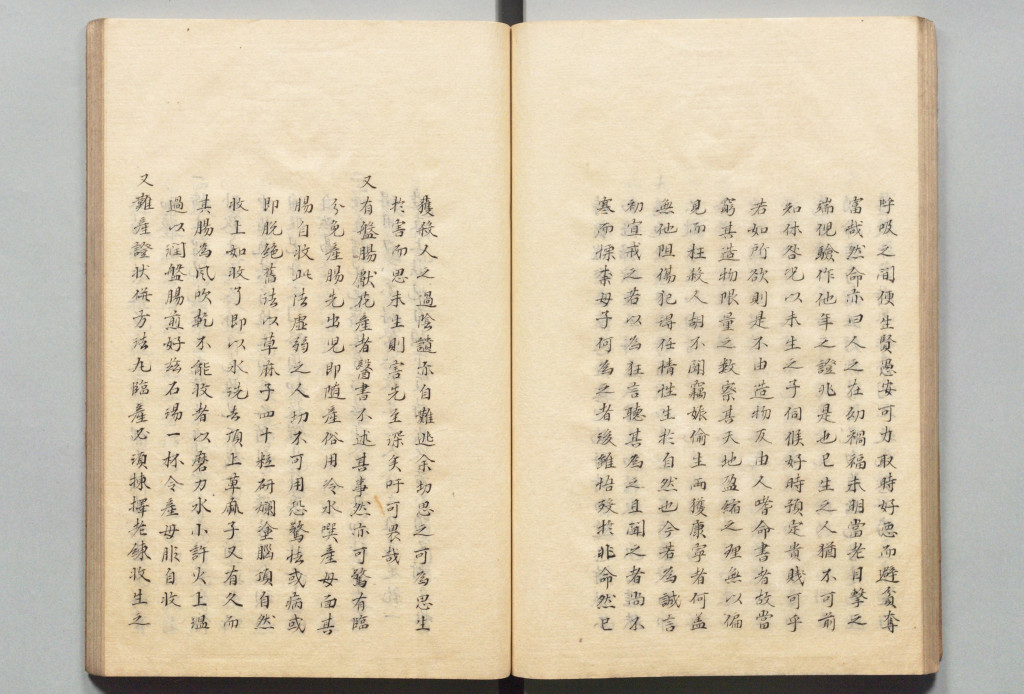 呼吸之間便生賢愚安可力取時好悪而避貧奪
富哉然命亦曰人之在幼禍福未明當老目撃之
端倪驗作他年之證兆是也已生之人猶不可前
知休咎况以未生之子伺候好時預定貴賤可乎
若如所欲則是不由造物反由人嗜命書者故當
窮其造物限量之数察其天地盈縮之理無以偏
見而枉殺人胡不聞竊娠偷生而獲康寧者何盖
無他阻傷犯得任情性生於自然也今若為誠言
初宣戒之若以為狂言聽其為之且聞之者尚不
寒而慄柰母子何為之者後雖怡發於非命然已
獲殺人之過陰譴亦自難逃余切思之可為思生
於害而思未生則害先生深矣吁可畏哉
又有盤腸獻花産者醫書不述其事然亦可驚有臨
分免産腸先出児即随産俗用冷水噀産母面其
腸自收此法虚弱之人切不可用恐驚怯或病或
即脱絶舊法以草麻子四十粒研爛塗腦頂自然
收上如收了即以水洗去頂上草麻子又有久而
其腸為風吹乾不能收者以磨刀水小許火上温
過以潤盤腸煎好磁石湯一杯令産母服自收
又難産證状併方法九臨産必須揀擇老錬收生之